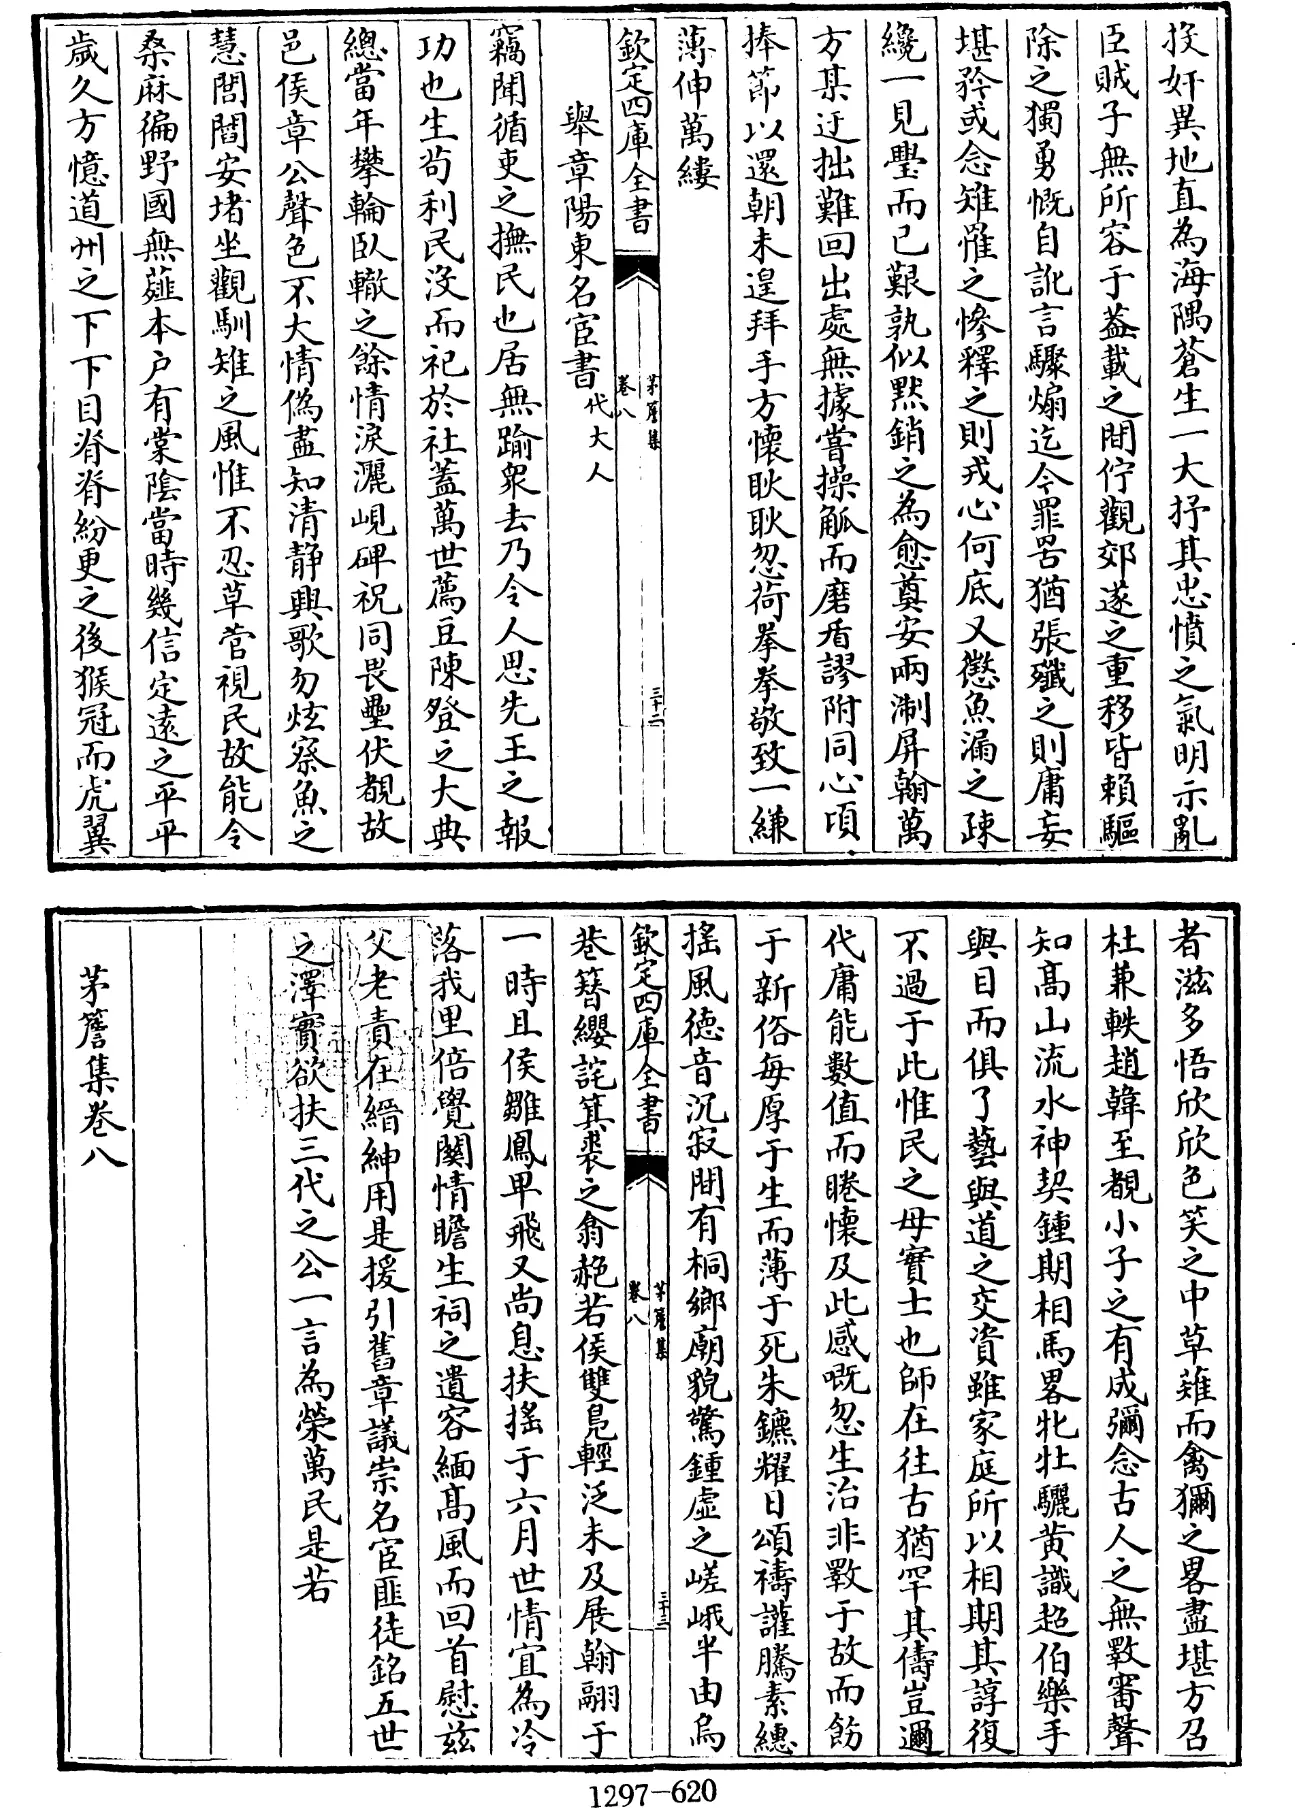 投奸異地直為海隅蒼生一大抒其忠憤之氣明示亂
臣賊子無所容于葢載之間佇觀郊遂之重移皆賴驅
除之獨勇慨自訛言驟煽迄今罪罟猶張殲之則庸妄
堪矜或念雉罹之慘釋之則戎心何底又懲魚漏之疎
纔一見璺而已艱孰似默銷之為愈奠安兩淛屏翰萬
方某迂拙難回出處無據嘗操觚而磨盾謬附同心頃
捧節以還朝未遑拜手方懷耿耿忽荷拳拳敬致一縑
薄伸萬縷
欽定四庫全書
茅簷集
卷八
三十二
舉章陽東名宦書代大人
竊聞循吏之撫民也居無踰衆去乃令人思先王之報
功也生茍利民沒而祀於社蓋萬世薦豆陳登之大典
總當年攀輪臥轍之餘情淚灑峴碑祝同畏壘伏覩故
邑侯章公聲色不大情偽盡知清静興歌勿炫察魚之
慧閭閻安堵坐觀馴雉之風惟不忍草菅視民故能令
桑麻徧野國無薤本户有棠陰當時幾信定遠之平平
歲久方憶道州之下下目脊脊紛更之後猴冠而虎翼
者滋多悟欣欣色笑之中草薙而禽獮之畧盡堪方召
杜兼軼趙韓至覩小子之有成彌念古人之無斁審聲
知高山流水神契鍾期相馬畧牝牡驪黄識超伯樂手
與目而俱了藝與道之交資雖家庭所以相期其諄復
不過于此惟民之母實士也師在往古猶罕其儔豈邇
代庸能數值而睠懷及此感嘅忽生治非斁于故而飭
于新俗每厚于生而薄于死朱鑣耀日頌禱讙騰素繐
摇風徳音沉寂間有桐鄉廟貌驚鍾虛之嵯峨半由烏
欽定四庫全書
茅簷集
卷八
三十三
巷簪纓詫箕裘之翕赩若侯雙鳬輕泛未及展翰翮于
一時且侯雛鳳甲飛又尚息扶摇于六月世情宜為冷
落我里倍覺闗情瞻生祠之遺容緬高風而回首慰兹
父老責在縉紳用是援引舊章議崇名宦匪徒銘五世
之澤實欲扶三代之公一言為榮萬民是若
茅簷集卷八
1297-620